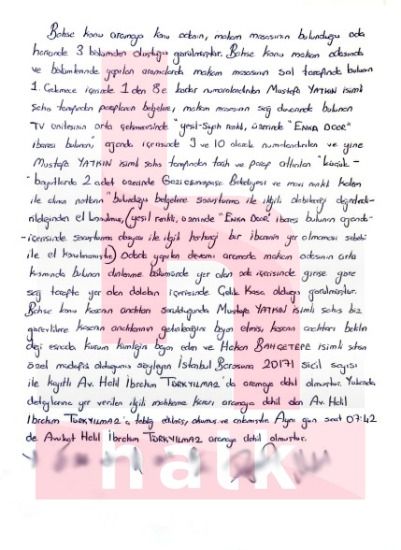 Bahse konu aramaya konu odanın, makam masasının bulunduğu oda
haricinde 3 bölümden oluştuğu görülmüştür. Bahse konu makam odasında
ve bölümlerinde yapılan aramalarda makam masasının sol tarafında bulunan
1. Çekmece içerisinde 1 den 8'e kadar numaralandırılan Mustafa YATKIN isimli
şahıs tarafından paraflanan belgeler, makam masasının sağ duvarında bulunan
TV ünitesinin orta çekmecesinde "yeşil-siyah renkli, üzerinde "ENKA DOOR"
ibaresi bulunan" ajanda içerisinde 9 ve 10 olarak numaralandırılan ve yine
Mustafa YATKIN isimli şahıs tarafından tarih ve paraf attırılan "küçük-
-boyutlarda 2 adet üzerinde Gaziosmanpaşa Belediyesi ve mavi renkli kalem
ile alınan notların" bulunduğu belgelere soruşturma ile ilgili olabileceği değerlendi-
rildiğinden el konulmuş, (yeşil renkli, üzerinde "ENKA DOOR" ibaresi bulunan ajanda-
-içerisinde soruşturma dosyası ile ilgili herhangi bir ibarenin yer olmaması sebebi
ile el konulmamıştır.) Odada yapılan devamı aramada makam odasının arka
kısmında bulunan dinlenme bölümünde yer alan oda içerisinde girişe göre
sağ tarafta yer alan dolabın içerisinde Çelik Kasa olduğu görülmüştür.
Bahse konu kasanın anahtarı sorulduğunda Mustafa YATKIN isimli şahıs biz
görevlilere kasanın anahtarının getirileceğini beyan etmiş, kasanın anahtarı beklen
diği esnada kurum kimliğini beyan eden ve Hakan BAHÇETEPE isimli şahsın
özel müdafisi olduğunu söyleyen İstanbul Barosuna 20171 sicil sayısı
ile kayıtlı Av. Halil İbrahim TÜRKYILMAZ da aramaya dahil olmuştur. Yukarıda
detaylarına yer verilen ilgili mahkeme kararı aramaya dahil olan Av. Halil
İbrahim TÜRKYILMAZ'a tebliğ edilmiş, okumuş ve anlamıştır. Aynı gün saat 07:42
de Avukat Halil İbrahim TÜRKYILMAZ aramaya dahil olmuştur.
halk